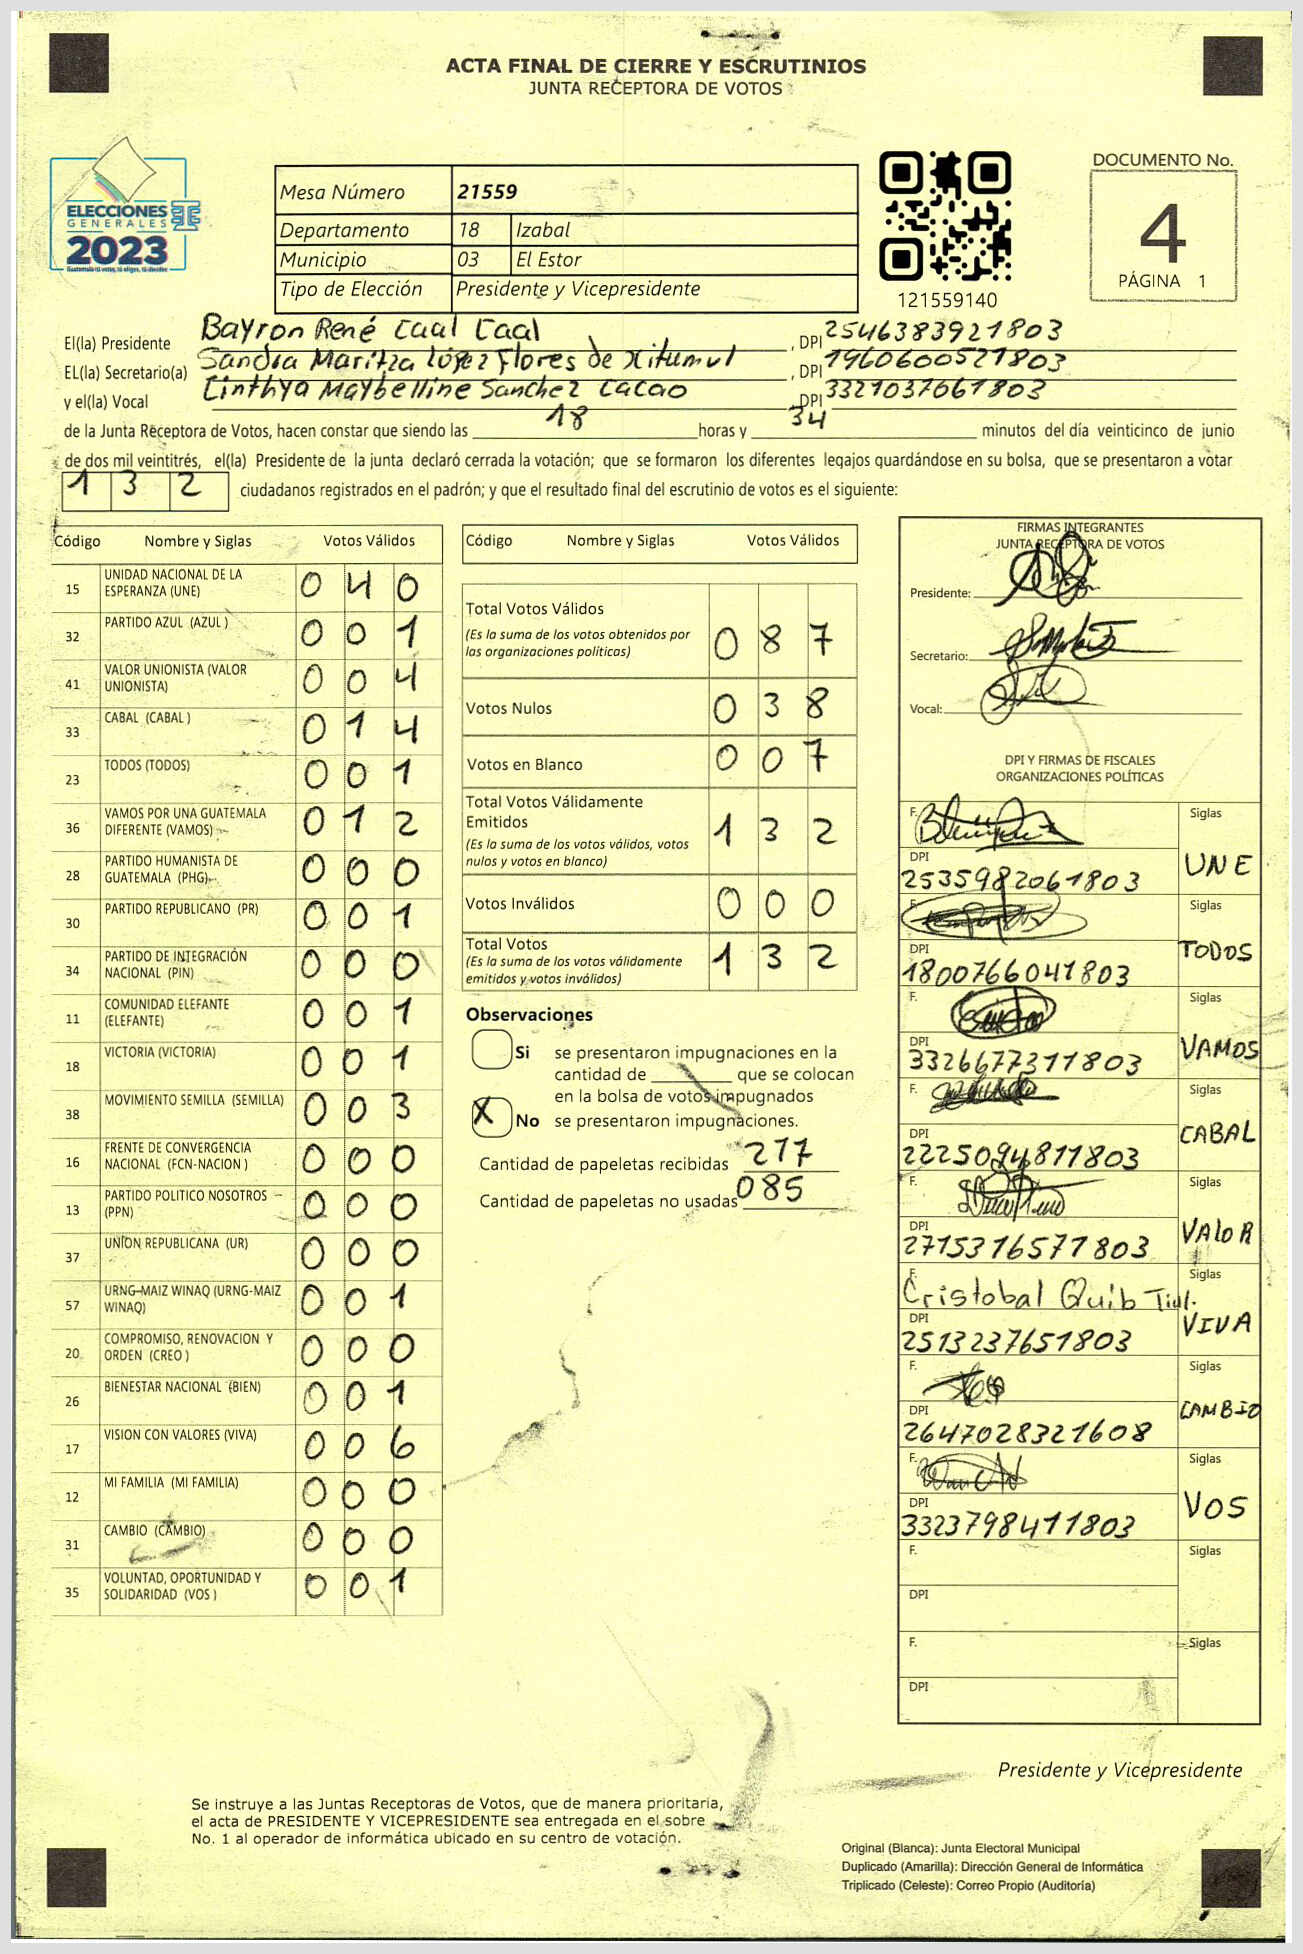 ACTA FINAL DE CIERRE Y ESCRUTINIOS
JUNTA RECEPTORA DE VOTOS
ELECCIONES
GENERALES
2023
Guatemala tú votas, tú eliges, tú decides
Mesa Número 21559
Departamento 18 Izabal
Municipio 03 El Estor
Tipo de Elección Presidente y Vicepresidente
121559140
DOCUMENTO No.
4
PÁGINA 1
El(la) Presidente Bayron René Caal Caal , DPI 2546383921803
EL(la) Secretario(a) Sandra Maritza López Flores de Xitumul , DPI 1960600521803
y el(la) Vocal Cinthya Maybelline Sanchez Cacao , DPI 3321037661803
de la Junta Receptora de Votos, hacen constar que siendo las 18 horas y 34 minutos del día veinticinco de junio
de dos mil veintitrés, el(la) Presidente de la junta declaró cerrada la votación; que se formaron los diferentes legajos guardándose en su bolsa, que se presentaron a votar
1 3 2 ciudadanos registrados en el padrón; y que el resultado final del escrutinio de votos es el siguiente:
Código Nombre y Siglas Votos Válidos
15 UNIDAD NACIONAL DE LA ESPERANZA (UNE) 0 4 0
32 PARTIDO AZUL (AZUL ) 0 0 1
41 VALOR UNIONISTA (VALOR UNIONISTA) 0 0 4
33 CABAL (CABAL ) 0 1 4
23 TODOS (TODOS) 0 0 1
36 VAMOS POR UNA GUATEMALA DIFERENTE (VAMOS) 0 1 2
28 PARTIDO HUMANISTA DE GUATEMALA (PHG) 0 0 0
30 PARTIDO REPUBLICANO (PR) 0 0 1
34 PARTIDO DE INTEGRACIÓN NACIONAL (PIN) 0 0 0
11 COMUNIDAD ELEFANTE (ELEFANTE) 0 0 1
18 VICTORIA (VICTORIA) 0 0 1
38 MOVIMIENTO SEMILLA (SEMILLA) 0 0 3
16 FRENTE DE CONVERGENCIA NACIONAL (FCN-NACION ) 0 0 0
13 PARTIDO POLITICO NOSOTROS (PPN) 0 0 0
37 UNION REPUBLICANA (UR) 0 0 0
57 URNG-MAIZ WINAQ (URNG-MAIZ WINAQ) 0 0 1
20 COMPROMISO, RENOVACION Y ORDEN (CREO ) 0 0 0
26 BIENESTAR NACIONAL (BIEN) 0 0 1
17 VISION CON VALORES (VIVA) 0 0 6
12 MI FAMILIA (MI FAMILIA) 0 0 0
31 CAMBIO (CAMBIO) 0 0 0
35 VOLUNTAD, OPORTUNIDAD Y SOLIDARIDAD (VOS ) 0 0 1
Código Nombre y Siglas Votos Válidos
Total Votos Válidos 0 8 7
(Es la suma de los votos obtenidos por
las organizaciones políticas)
Votos Nulos 0 3 8
Votos en Blanco 0 0 7
Total Votos Válidamente
Emitidos 1 3 2
(Es la suma de los votos válidos, votos
nulos y votos en blanco)
Votos Inválidos 0 0 0
Total Votos 1 3 2
(Es la suma de los votos válidamente
emitidos y votos inválidos)
Observaciones
Si se presentaron impugnaciones en la
cantidad de ________ que se colocan
en la bolsa de votos impugnados
X No se presentaron impugnaciones.
Cantidad de papeletas recibidas 217
Cantidad de papeletas no usadas 085
FIRMAS INTEGRANTES
JUNTA RECEPTORA DE VOTOS
Presidente:
Secretario:
Vocal:
DPI Y FIRMAS DE FISCALES
ORGANIZACIONES POLÍTICAS
F. Siglas
DPI UNE
2535982061803
F. Siglas
DPI TODOS
1800766041803
F. Siglas
DPI VAMOS
3326677311803
F. Siglas
DPI CABAL
2225094811803
F. Siglas
DPI VALOR
2715316571803
F. Cristobal Quib Tiul. Siglas
DPI VIVA
2513237651803
F. Siglas
DPI CAMBIO
2647028321608
F. Siglas
DPI VOS
3323798411803
F. Siglas
DPI
F. Siglas
DPI
Presidente y Vicepresidente
Se instruye a las Juntas Receptoras de Votos, que de manera prioritaria,
el acta de PRESIDENTE Y VICEPRESIDENTE sea entregada en el sobre
No. 1 al operador de informática ubicado en su centro de votación.
Original (Blanca): Junta Electoral Municipal
Duplicado (Amarilla): Dirección General de Informática
Triplicado (Celeste): Correo Propio (Auditoría)